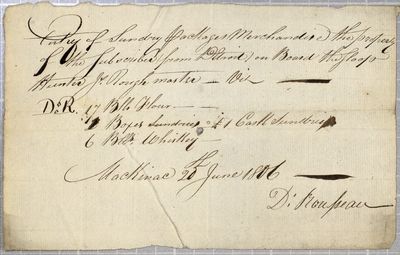 Entry of Sundry Packages Merchandise the property
of the Subscriber (from Detroit) on Board the Sloop
Hunter Js. Rough master — Viz
D.R. 17 Bbls Flour
2 Boxes Sundries & 1 Cask Sundries
6 Bbls Whiskey
Mackinac 20th June 1806
D. Rousseau